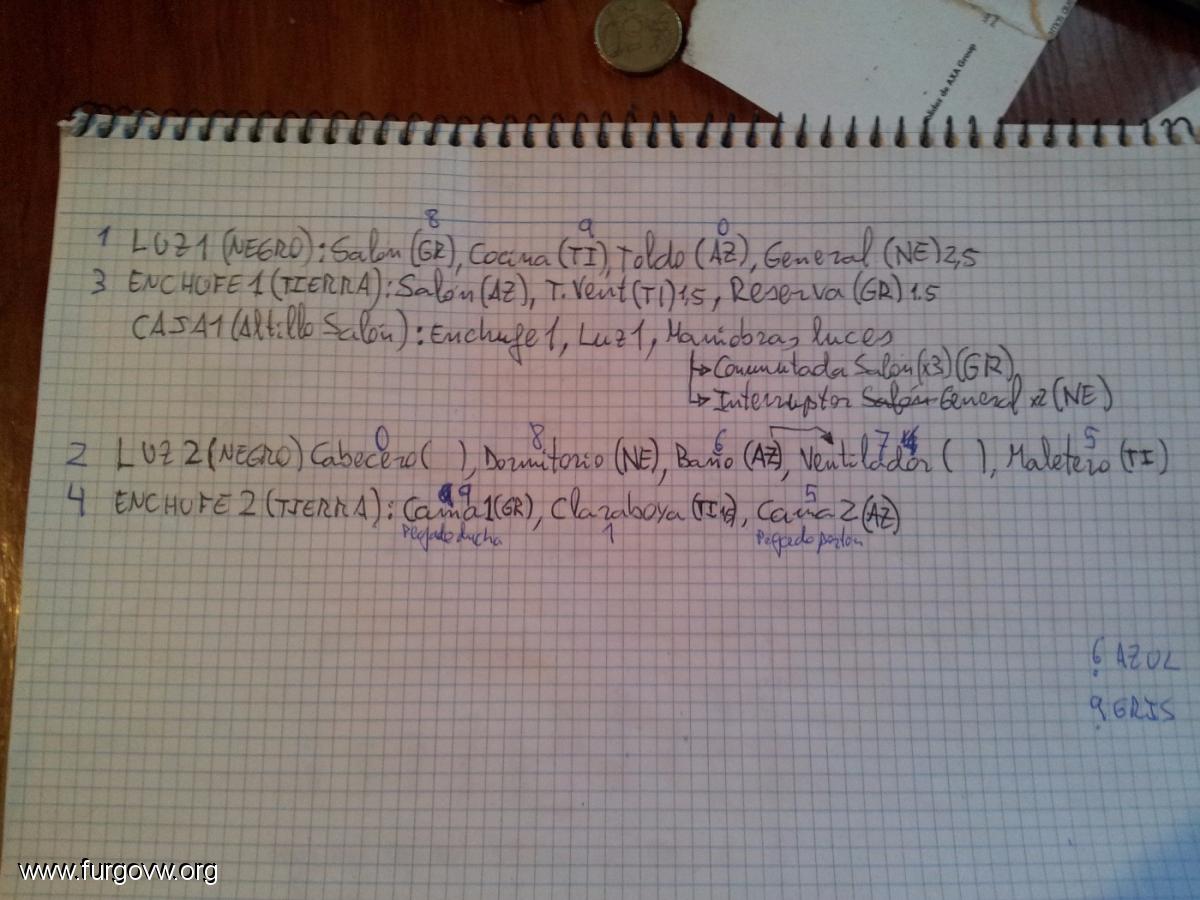 didos de AXA Group
8 9 0
1 LUZ1 (NEGRO): Salón (GR), Cocina (TI), Toldo (AZ), General (NE) 2,5
3 ENCHUFE 1 (TIERRA): Salón (AZ), T.Vent (TI) 1,5, Reserva (GR) 1.5
CAJA1 (Altillo Salón): Enchufe 1, Luz 1, Maniobras luces
→ Conmutada Salón (x3) (GR)
→ Interruptor Salón General x2 (NE)
0 8 6 7 5
2 LUZ 2 (NEGRO) Cabecero ( ), Dormitorio (NE), Baño (AZ), Ventilador ( ), Maletero (TI)
9 5
4 ENCHUFE 2 (TIERRA): Cama 1 (GR), Claraboya (TI 1,5), Cama 2 (AZ)
Pegado ducha 1 Pegado portón
6 AZUL
9 GRIS
www.furgovw.org